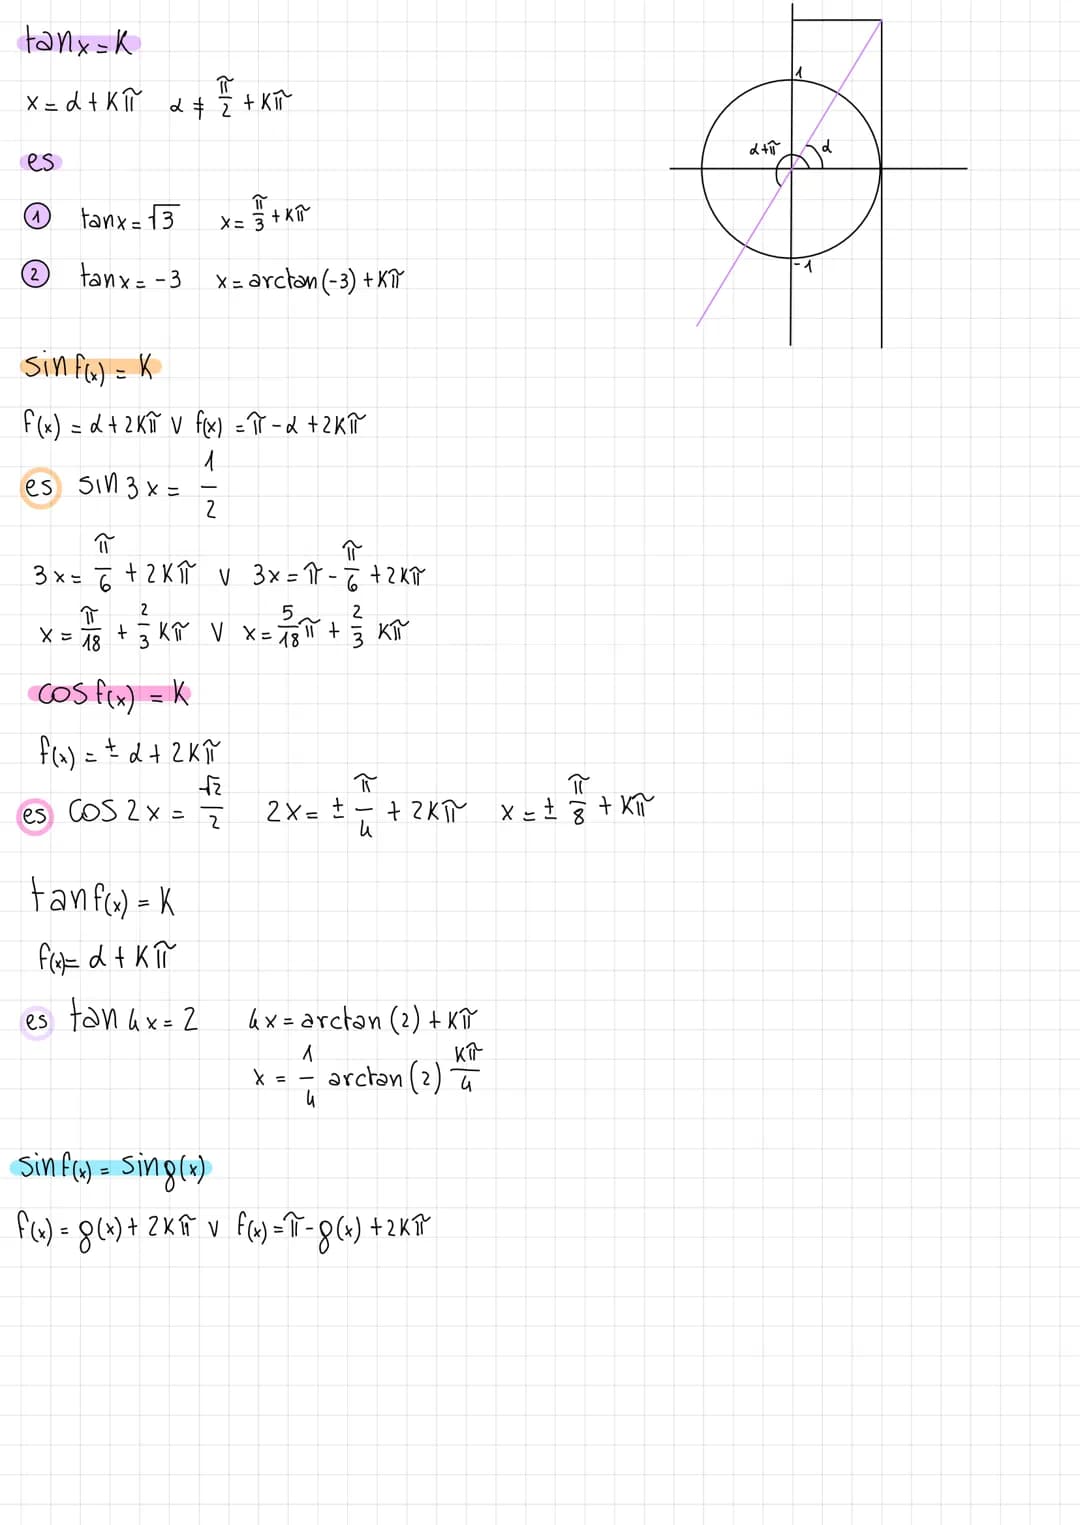 tanx = K
x = α + Kπ α ≠ π/2 + Kπ
es
① tanx = √3 x = π/3 + Kπ
② tanx = -3 x = arctan(-3) + Kπ
1
α+π α
-1
sin f(x) = K
f(x) = α + 2Kπ ∨ f(x) = π - α + 2Kπ
es sin 3x = 1/2
3x = π/6 + 2Kπ ∨ 3x = π - π/6 + 2Kπ
x = π/18 + 2/3 Kπ ∨ x = 5/18 π + 2/3 Kπ
cos f(x) = K
f(x) = ± α + 2Kπ
es cos 2x = √2/2 2x = ± π/4 + 2Kπ x = ± π/8 + Kπ
tan f(x) = K
f(x) = α + Kπ
es tan 4x = 2 4x = arctan (2) + Kπ
x = 1/4 arctan (2) Kπ/4
sin f(x) = sin g(x)
f(x) = g(x) + 2Kπ ∨ f(x) = π - g(x) + 2Kπ